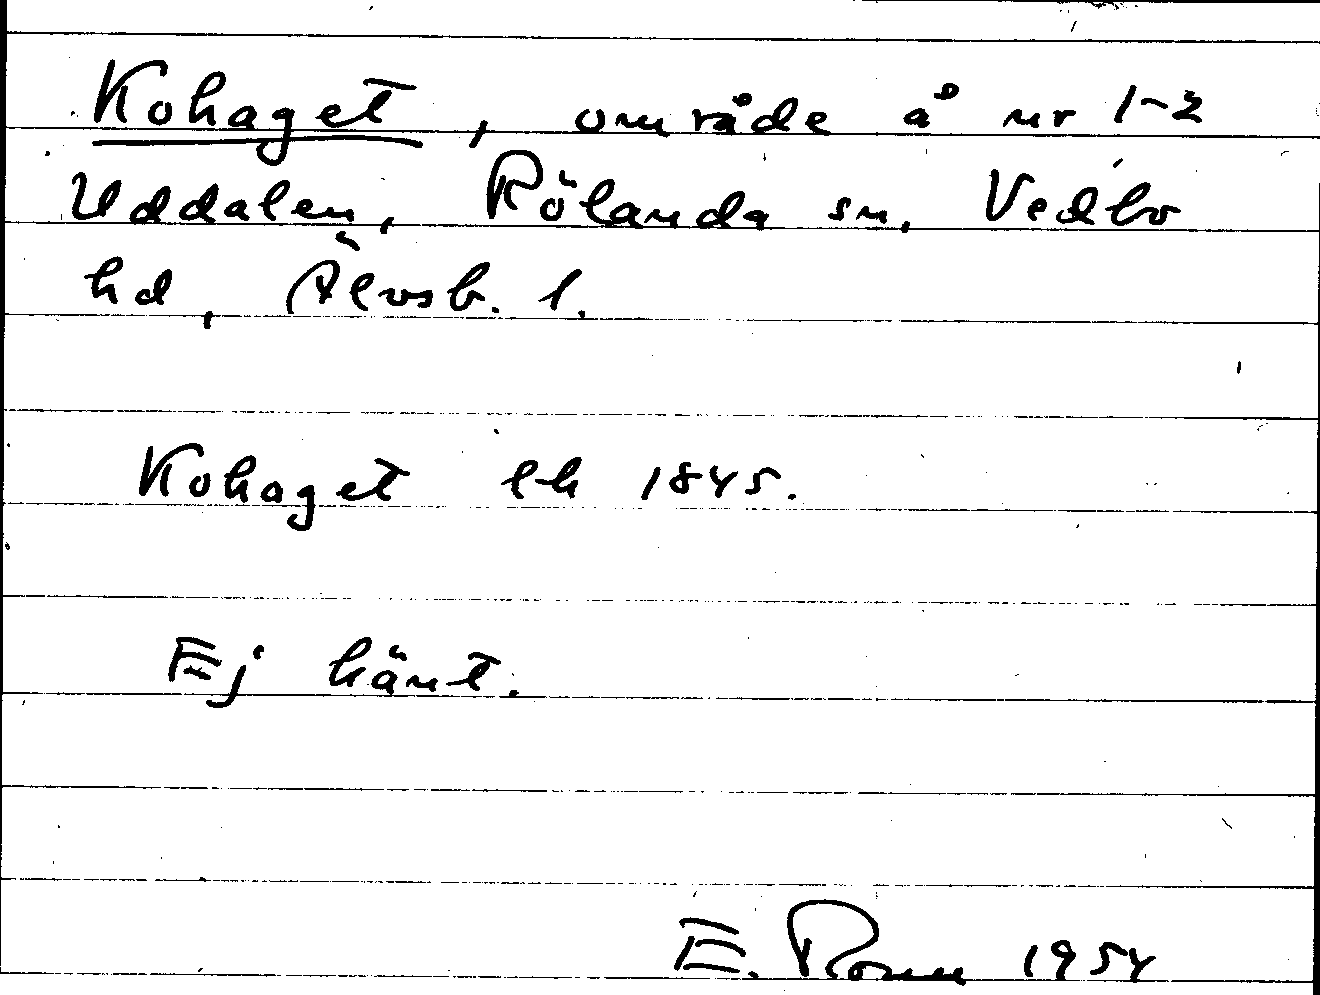 Kohaget, område å nr 1-2
Uddalen, Rölanda sn, Vedbo
hd, Älvsb. l.
Kohaget lh 1845.
Ej känt.
E. Rosell 1954